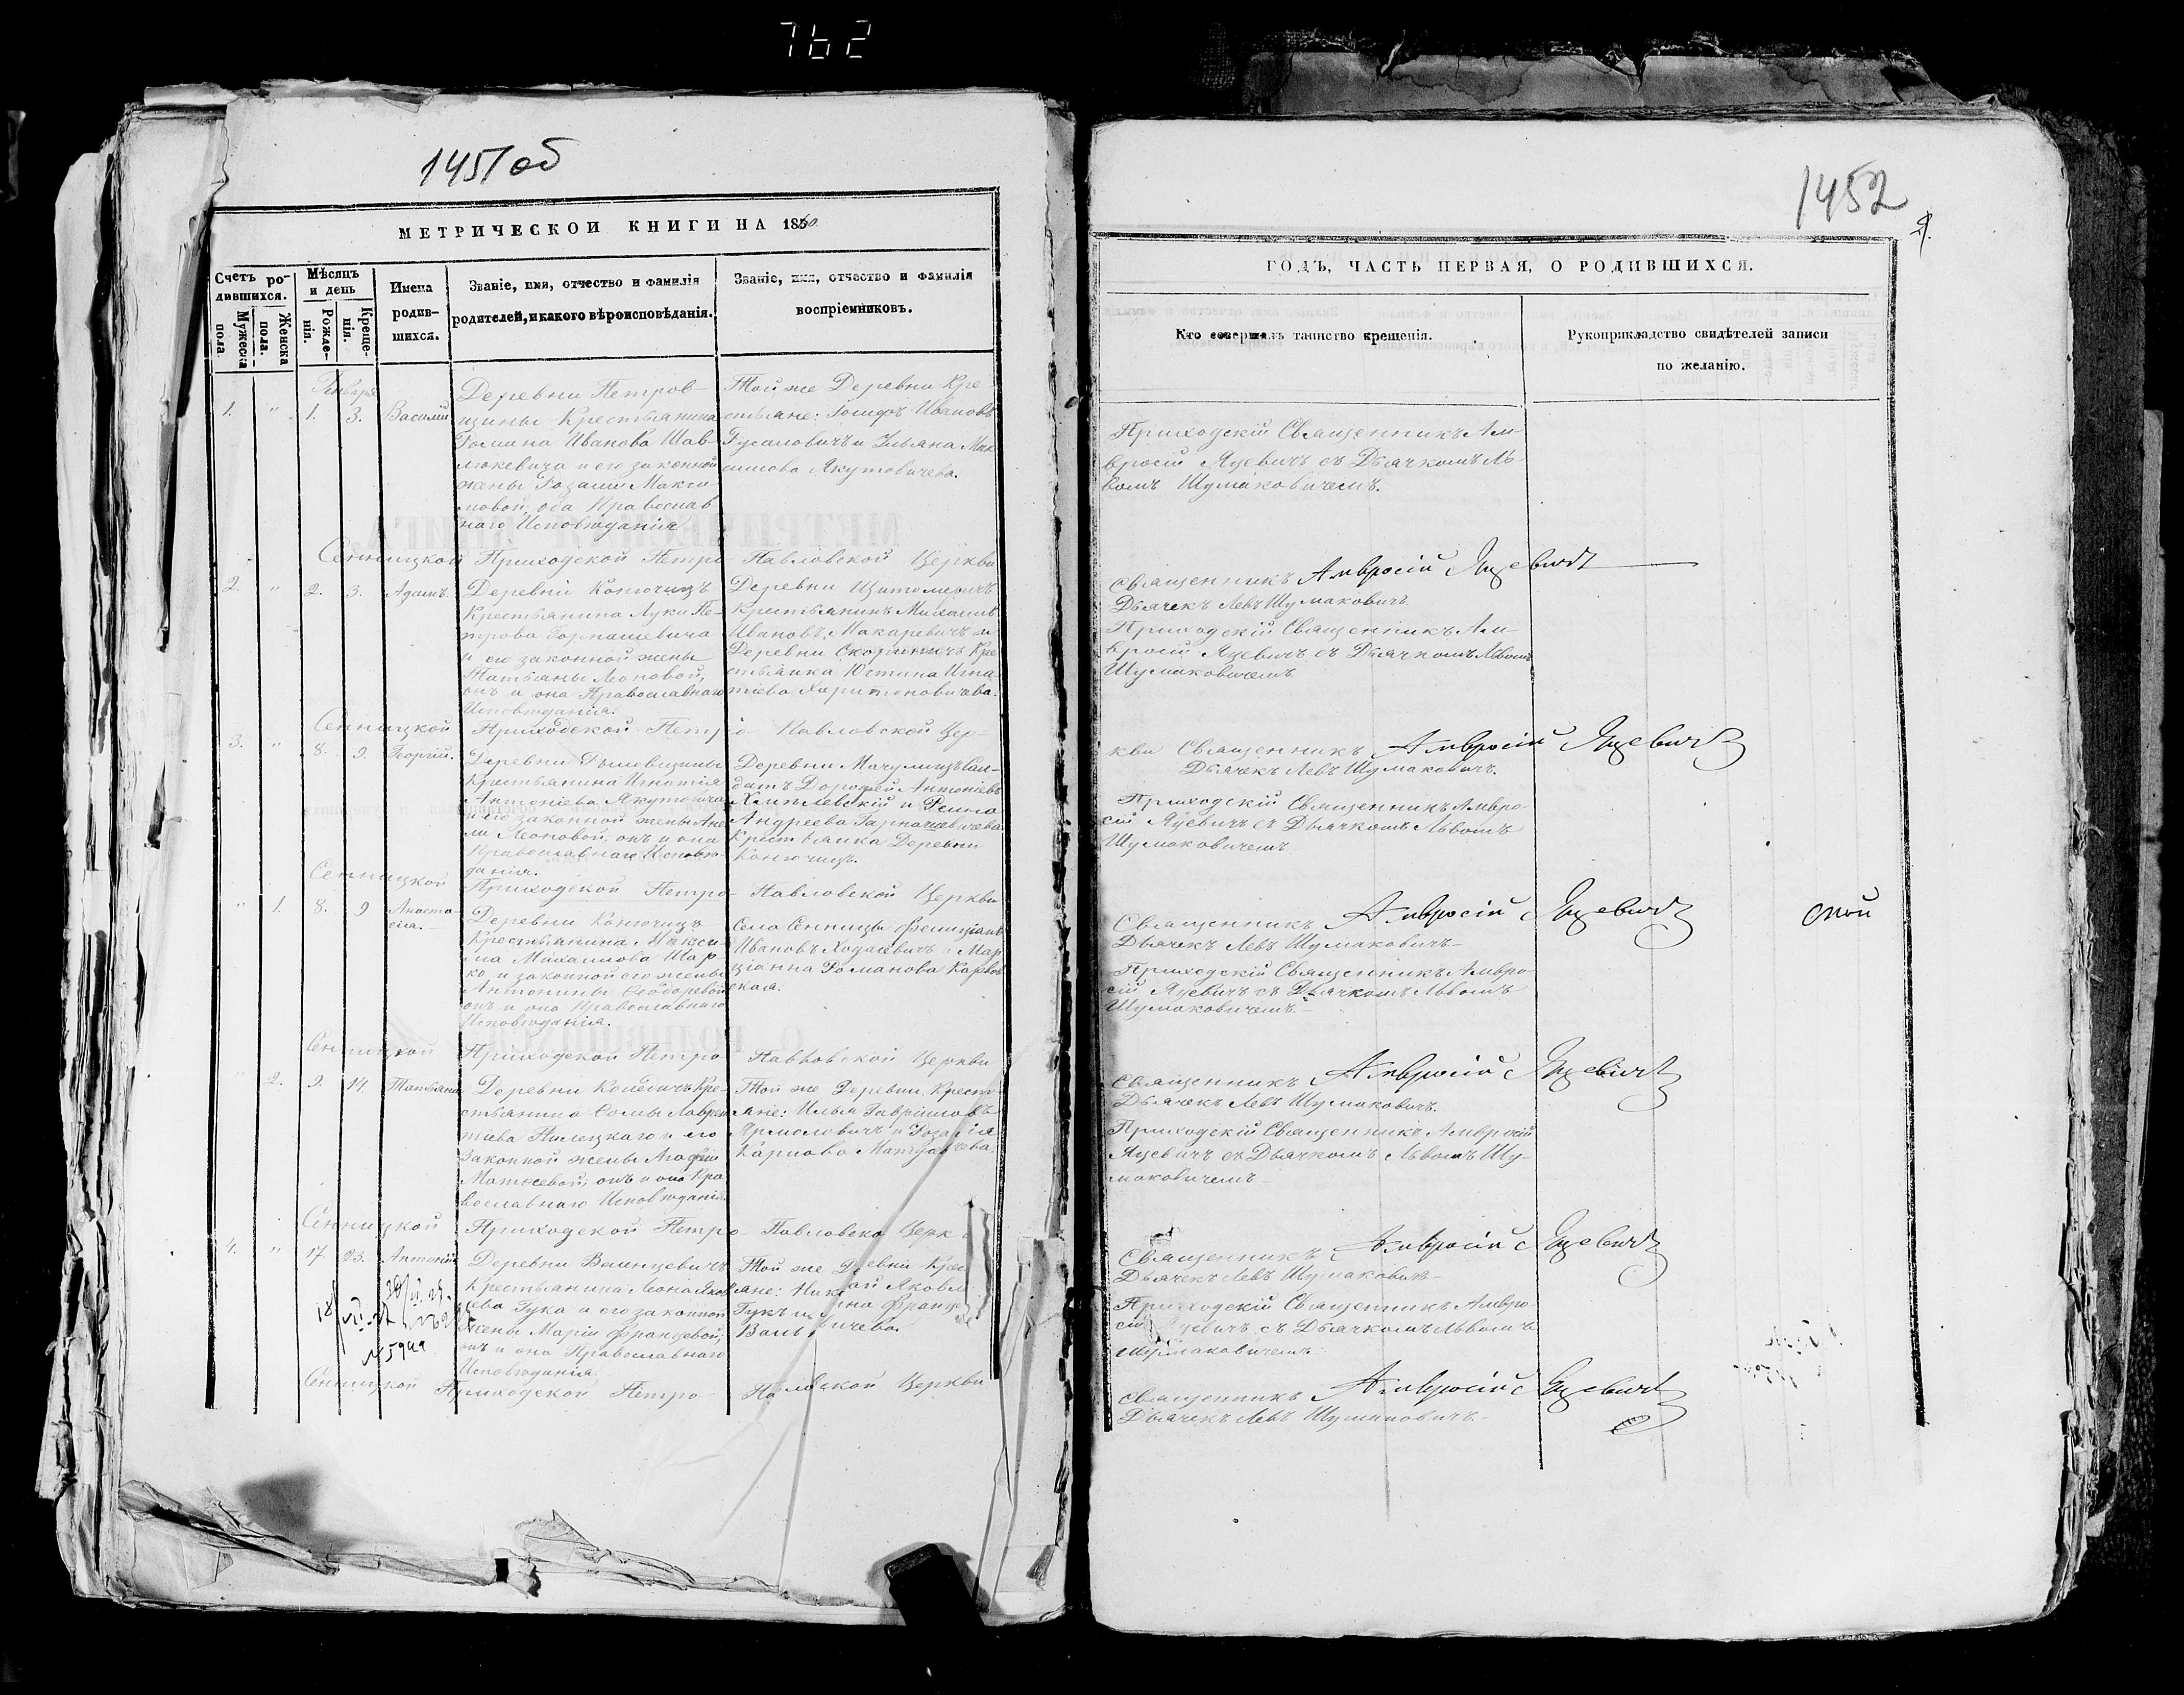 762
1451 об
МЕТРИЧЕСКОЙ КНИГИ НА 1860
Счетъ ро-
дившихся.
Мужеска пола.
Женска пола.
Мѣсяцъ
и день
Рожде-
нія.
Креще-
нія.
Имена
родив-
шихся.
Званіе, имя, отчество и фамилія
родителей, и какого вѣроисповѣданія.
Званіе, имя, отчество и фамилія
воспріемниковъ.
Январь
1. " 1. 3. Василій
Деревни Петров-
щины Крестьянина
Романа Иванова Шав-
люкевича и его законной
жены Розаліи Макси-
мовой, оба Православ
наго Исповѣданія
Той же Деревни Кре
стьяне: Іосифъ Ивановъ
Русаловичъ и Ульяна Мак
симова Якутовичева.
Сенницкой Приходской Петро-Павловской Церкви
2. " 2. 3. Адамъ.
Деревни Конючицъ
Крестьянина Луки Пе-
трова Гормашевича
и его законной жены
Татьяны Леоновой,
онъ и она Православнаго
Исповѣданія.
Деревни Щитомеричъ
Крестьянинъ Михаилъ
Ивановъ Макаревичъ и
Деревни Скориничъ Кре
стьянка Юстина Игна
тіева Харитоновичева.
Сенницкой Приходской Петро-Павловской Цер-
3. " 8. 9. Георгій.
Деревни
Крестьянина Игнатія
Антоніева Якутовича
и его законной жены Ане
ли Леоновой, онъ и она
Православнаго Исповѣ-
данія.
Деревни Мачулищъ Сол-
датъ Дорофей Антоніевъ
Хмилевскій и
Андреева Гармашевичева
Крестьянка Деревни
Конючицъ.
Сенницкой Приходской Петро-Павловской Церкви
" 1. 8. 9 Анаста-
сія.
Деревни Конючицъ
Крестьянина Макси-
ма Михаилова Шар
ко, и законной его жены
Антонины Ѳеодоровой
онъ и она Православнаго
Исповѣданія.
Села Сенницы Фелиціанъ
Ивановъ Ходасевичъ и Мар
ціанна Романова Карпов
ская.
Сенницкой Приходской Петро-Павловской Церкви
" 2. 9. 14. Татьяна
Деревни Копѣевичъ Кре-
стьянина Ѳомы Лаврен
тіева Пилецкаго и его
Законной жены Агафіи
Матѳеевой, онъ и она Пра
вославнаго Исповѣданія.
Той же Деревни Кресть-
яне: Илья Гавріиловъ
Ярмоловичъ и Розалія
Карпова Матусевичева
Сенницкой Приходской Петро-Павловско Церк
4. " 17 23. Антоній
Деревни Валенцевичъ
Крестьянина Леона Яков
лева Гука и его законной
жены Маріи Францевой,
онъ и она Православнаго
Исповѣданія.
Той же Деревни Крес
яне: Ник ай Яковл
Гукъ и на Франц
Вал ичева.
№ 5944
Сенницкой Приходской Петро Павловской Церкви
1452
ГОДЪ, ЧАСТЬ ПЕРВАЯ, О РОДИВШИХСЯ.
Кто совершалъ таинство крещенія.
Рукоприкладство свидѣтелей записи
по желанію.
Приходскій Священникъ Ам-
вросій Яцевичъ съ Дьячкомъ Ль-
вомъ Шумаковичемъ.
Священникъ Амвросій Яцевичъ
Дьячекъ Левъ Шумаковичъ.
Приходскій Священникъ Ам-
вросій Яцевичъ съ Дьячкомъ Львомъ
Шумаковичемъ
кви Священникъ Амвросій Яцевичъ
Дьячекъ Левъ Шумаковичъ.
Приходскій Священникъ Амвро
сій Яцевичъ съ Дьячкомъ Львомъ
Шумаковичемъ
Священникъ Амвросій Яцевичъ
Дьячекъ Левъ Шумаковичъ
Приходскій Священникъ Амвро
сій Яцевичъ съ Дьячкомъ Львомъ
Шумаковичемъ.
Священникъ Амвросій Яцевичъ
Дьячекъ Левъ Шумаковичъ.
Приходскій Священникъ Амвросій
Яцевичъ съ Дьячкомъ Львомъ Шу-
маковичемъ
Священникъ Амвросій Яцевичъ
Дьячекъ Левъ Шумаковичъ
Приходскій Священникъ Амвро
сій Яцевичъ съ Дьячкомъ Львомъ
Шумаковичемъ.
Священникъ Амвросій Яцевичъ
Дьячекъ Левъ Шумаковичъ.